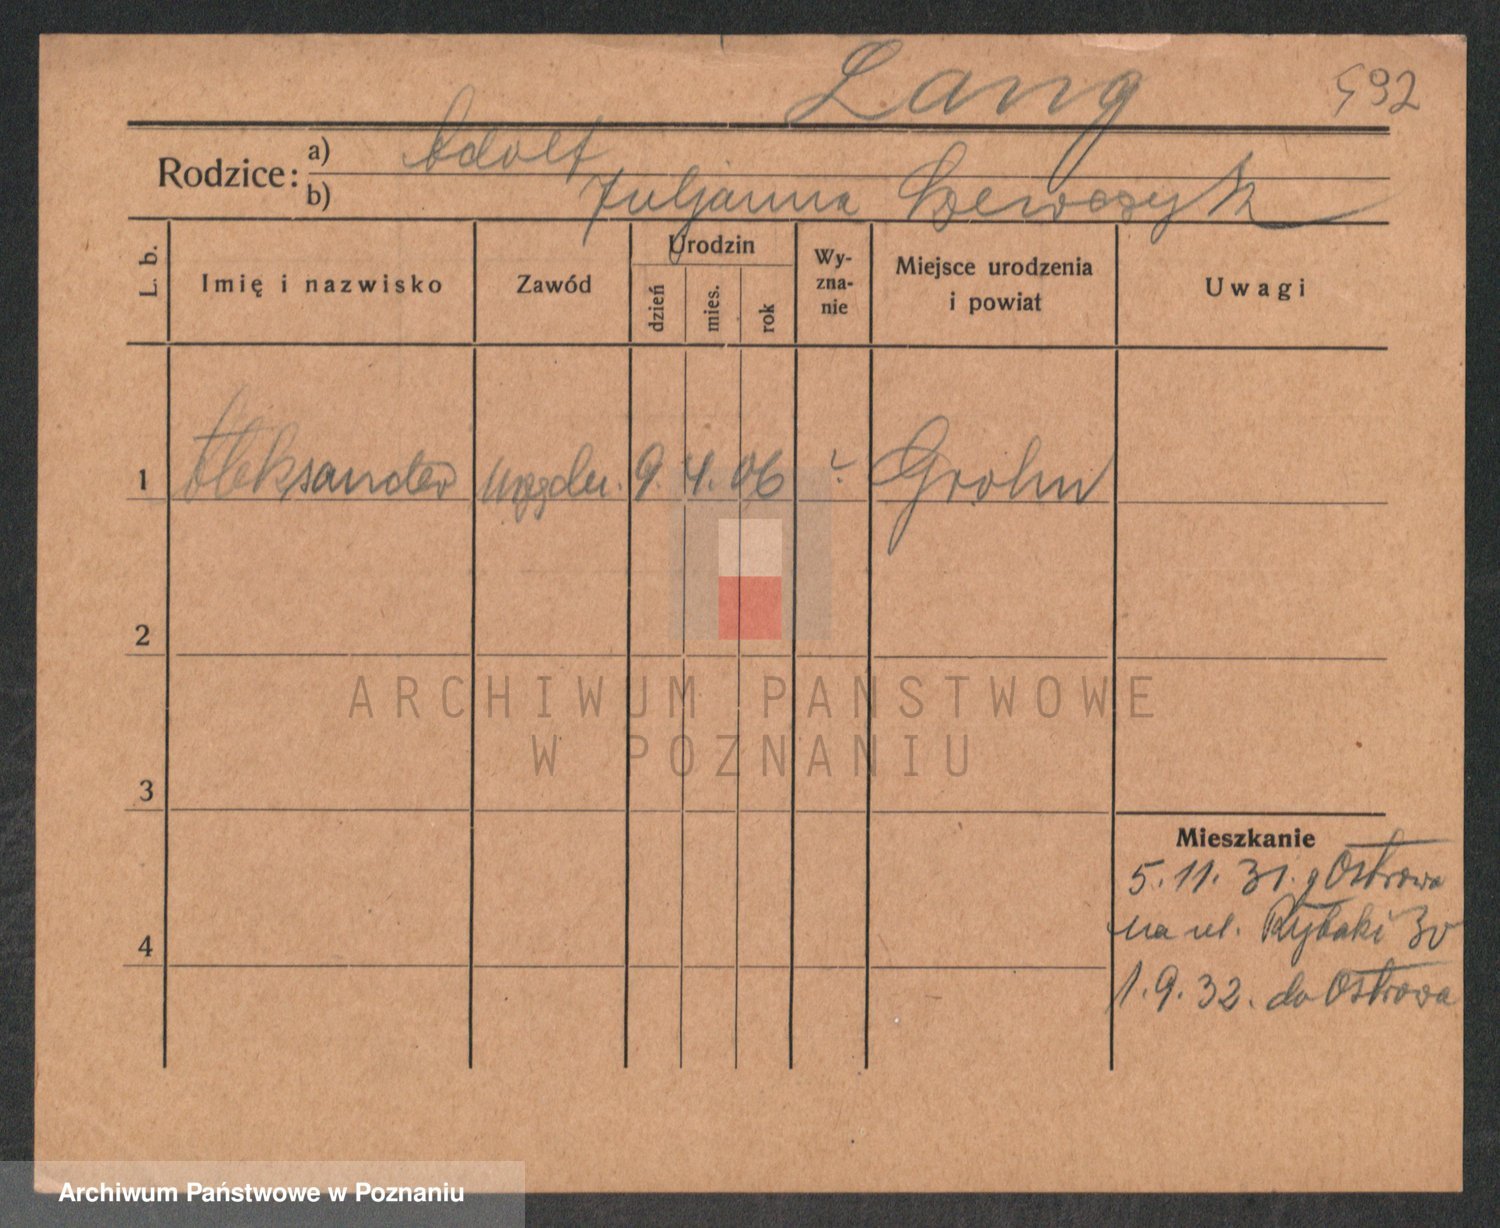 Lang 592
Rodzice: a) Adolf
b) Juljanna Szewczyk
L. b. Imię i nazwisko Zawód Urodzin dzień mies. rok Wyznanie Miejsce urodzenia i powiat Uwagi
1 Aleksander 9. 4. 06
2
ARCHIWUM PAŃSTWOWE
W POZNANIU
3
Mieszkanie
5. 11. 31. z Ostrowa
na ul. Rybaki 30
4
1. 9. 32. do Ostrowa
Archiwum Państwowe w Poznaniu